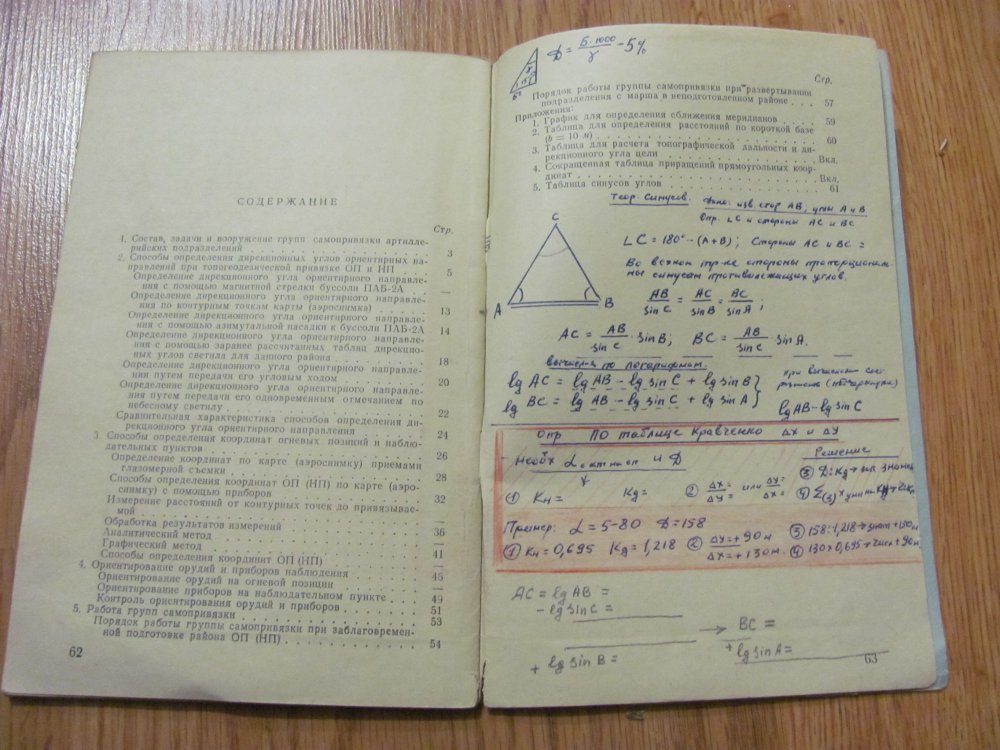 СОДЕРЖАНИЕ
Стр.
1. Состав, задачи и вооружение групп самопривязки артилле-
рийских подразделений . . . 3
2. Способы определения дирекционных углов ориентирных на-
правлений при топогеодезической привязке ОП и НП . . . 5
Определение дирекционного угла ориентирного направления
с помощью магнитной стрелки буссоли ПАБ-2А . . . —
Определение дирекционного угла ориентирного направле-
ния по контурным точкам карты (аэроснимка) . . . 13
Определение дирекционного угла ориентирного направления
с помощью азимутальной насадки к буссоли ПАБ-2А 14
Определение дирекционного угла ориентирного направле-
ния с помощью заранее рассчитанных таблиц дирекцион-
ных углов светила для данного района . . . 18
Определение дирекционного угла ориентирного направле-
ния путем передачи его угловым ходом . . . 20
Определение дирекционного угла ориентирного направле-
ния путем передачи его одновременным отмечанием по
небесному светилу . . . 22
Сравнительная характеристика способов определения ди-
рекционного угла ориентирного направления . . . 24
3. Способы определения координат огневых позиций и наблю-
дательных пунктов . . . 26
Определение координат по карте (аэроснимку) приемами
глазомерной съемки . . . —
Способы определения координат ОП (НП) по карте (аэро-
снимку) с помощью приборов . . . 28
Измерение расстояния от контурных точек до привязывае-
мой . . . 32
Обработка результатов измерений . . . —
Аналитический метод . . . 36
Графический метод . . . —
Способы определения координат ОП (НП) . . . 41
4. Ориентирование орудий и приборов наблюдения . . . —
Ориентирование орудий на огневой позиции . . . 45
Ориентирование приборов на наблюдательном пункте . . . —
Контроль ориентирования орудий и приборов . . . 49
5. Работа групп самопривязки . . . 51
Порядок работы группы самопривязки при заблаговремен-
ной подготовке района ОП (НП) . . . 54
53
62
Д = Б·1000 / γ - 5%
Стр.
Порядок работы группы самопривязки при развертывании
подразделения с марша в неподготовленном районе . . . 57
Приложения:
1. График для определения сближения меридианов . . . 59
2. Таблица для определения расстояний по короткой базе
(b = 10 м) . . . 60
3. Таблица для расчета топографической дальности и ди-
рекционного угла цели . . . Вкл.
4. Сокращенная таблица приращений прямоугольных коор-
динат . . . Вкл.
5. Таблица синусов углов . . . 61
Теор. Синусов. Дано: изв. стор АВ, углы А и В
Опр. ∠С и стороны АС и ВС
C
A
B
∠C = 180° - (A+B); Стороны АС и ВС =
Во всяком тр-ке стороны пропорциональ-
ны синусам противолежащих углов.
AB / sin C = AC / sin B = BC / sin A ;
AC = AB / sin C · sin B; BC = AB / sin C · sin A.
вычислен. по логарифмам:
lg AC = lg AB - lg sin C + lg sin B }
lg BC = lg AB - lg sin C + lg sin A }
при вычислен
lg AB - lg sin C
Опр по таблице Кравченко ΔХ и ΔУ
Необх и D
Решение
① Кн = Кд = ② ΔX= ΔУ= или ΔУ= ΔX=
③ D: Кд →
④
Пример: α = 5-80 D = 158
① Кн = 0,695 Кд = 1,218 ② ΔУ = +90 м ΔX = +130 м
③ 158:1,218 →
④ 130 х 0,695 →
AC = lg AB =
- lg sin C =
→ BC =
+ lg sin B =
+ lg sin A =
63